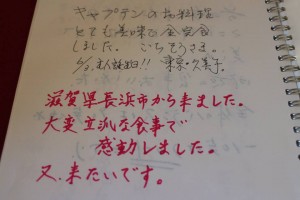 キャプテンのお料理
とても美味で全完食
しました。ごちそうさま。
東京・久美子
滋賀県長浜市から来ました。
大変立派な食事で
感動しました。
又、来たいです。